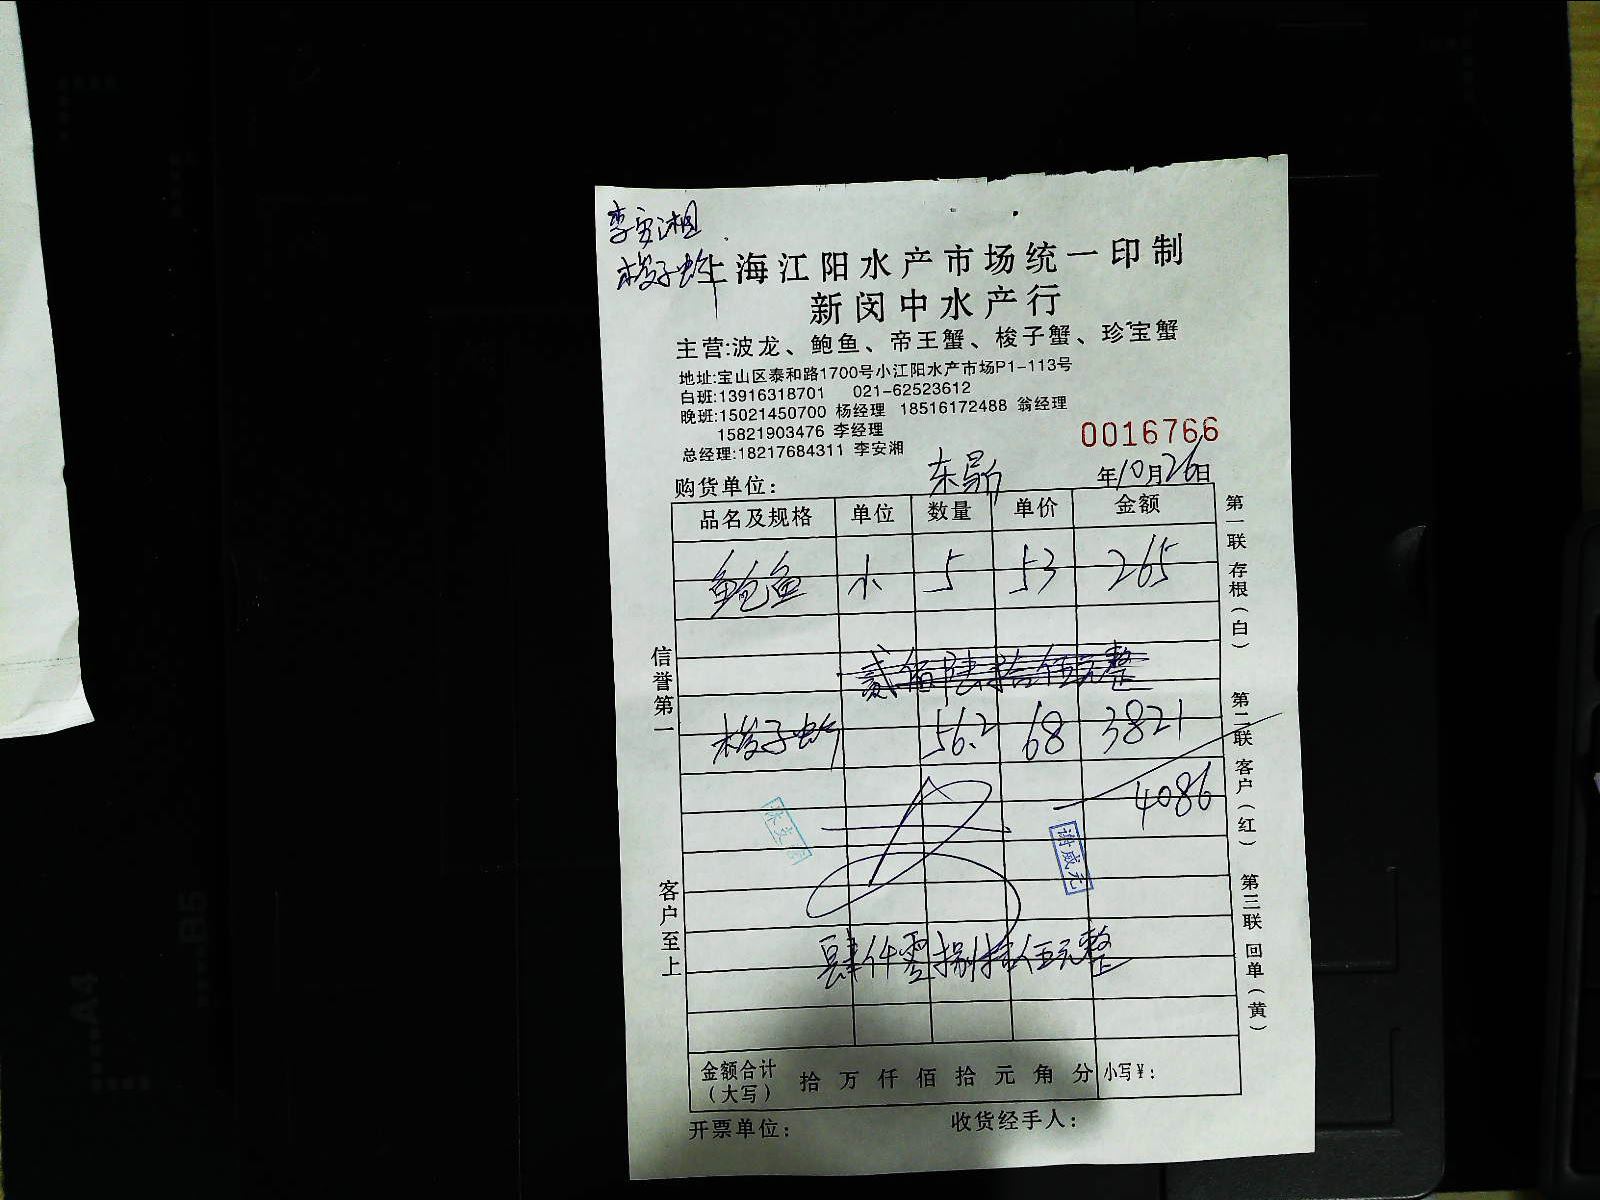 李安湘
梭子蟹
上海江阳水产市场统一印制
新闵中水产行
主营:波龙、鲍鱼、帝王蟹、梭子蟹、珍宝蟹
地址:宝山区泰和路1700号小江阳水产市场P1-113号
白班:13916318701 021-62523612
晚班:15021450700 杨经理 18516172488 翁经理
15821903476 李经理
总经理:18217684311 李安湘
0016766
购货单位:
年10月26日
品名及规格 单位 数量 单价 金额
鲍鱼 小 5 53 265
贰佰陆拾伍元整
梭子蟹 56.2 68 3821
4086
谢威元
肆仟零捌拾伍元整
金额合计(大写) 拾 万 仟 佰 拾 元 角 分 小写¥:
开票单位: 收货经手人:
信誉第一
客户至上
第一联 存根(白)
第二联 客户(红)
第三联 回单(黄)